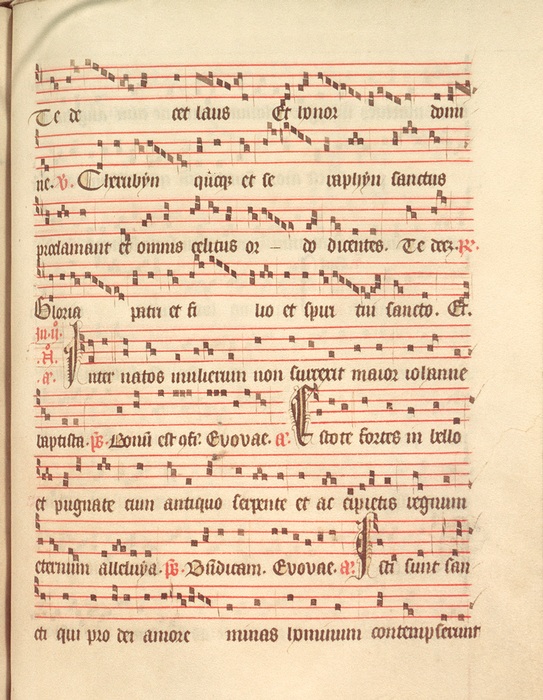 Te de cet laus Et honor domi
ne. V. Cherubyn quoque et se raphyn sanctus
proclamant et omnis celitus or - do dicentes. Te decz. R.
Gloria patri et fi lio et spiri tui sancto. Et.
In ii. A. a. Inter natos mulierum non surrexit maior iohanne
baptista. ps. Bonū est cōfi. Evovae. a. Estote fortes in bello
et pugnate cum antiquo serpente et ac cipietis regnum
eternum alleluya. ps. Bndicam. Evovae. a. Isti sunt san
cti qui pro dei amore minas hominum contempserunt